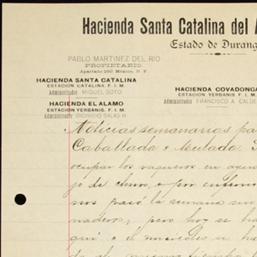 Hacienda Santa Catalina del A
Estado de Durang
PABLO MARTINEZ DEL RIO
PROPIETARIO.
Apartado México, D. F.
HACIENDA SANTA CATALINA
ESTACION CATALINA, F. I. M.
Administrador MIGUEL SOTO
HACIENDA COVADONG
ESTACION YERBANIS, F. I. M.
Administrador FRANCISCO A. CALDE
HACIENDA EL ALAMO
ESTACION YERBANIS, F. I. M.
Administrador DIONISIO SALAS H
Noticias semanarias pa
Caballada e Mulada.
ocupar los vaqueros en
jo de chivo, e por enferm
nos pasó la semana sin
naderos; pero hoy se ha
qui e el miércoles se ha